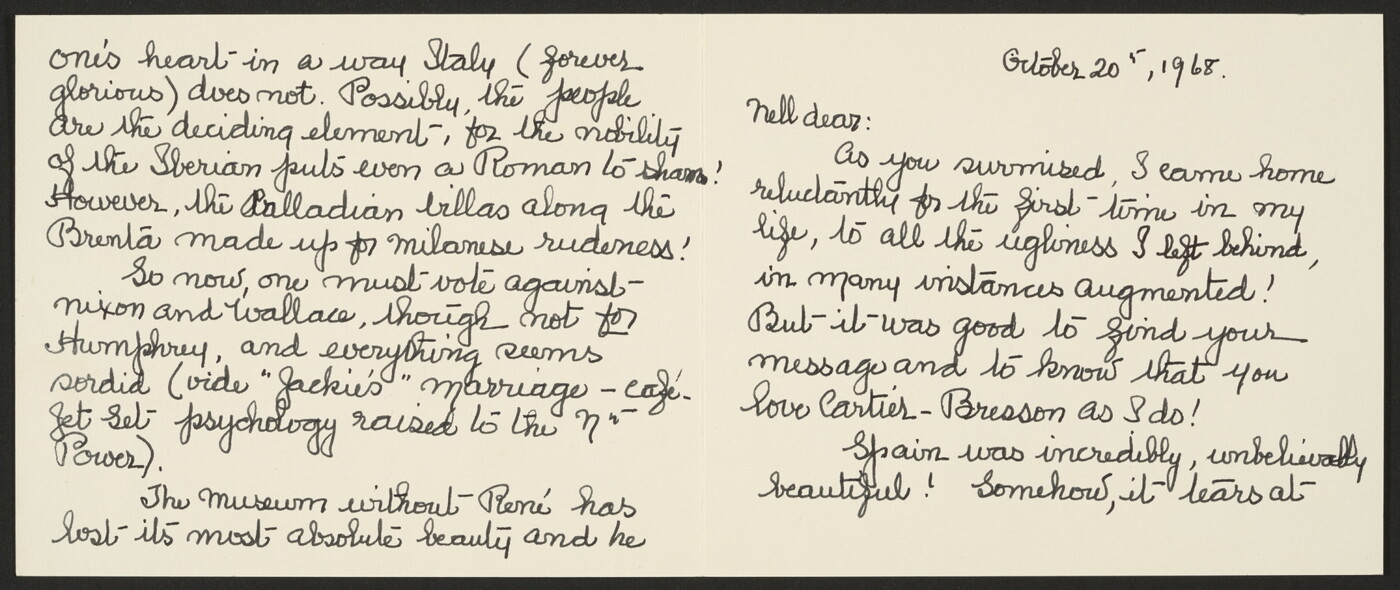 October 20th, 1968.
Nell dear:
As you surmised, I came home
reluctantly for the first time in my
life, to all the ugliness I left behind,
in many instances augmented!
But it was good to find your
message and to know that you
love Cartier-Bresson as I do!
Spain was incredibly, unbelievably
beautiful! Somehow, it tears at
one's heart in a way Italy (forever
glorious) does not. Possibly, the people
are the deciding element, for the nobility
of the Iberian puts even a Roman to shame!
However, the Palladian villas along the
Brenta made up for Milanese rudeness!
So now, one must vote against
Nixon and Wallace, though not for
Humphrey, and everything seems
sordid (vide "Jackie's" marriage - café-
Jet Set psychology raised to the nth
Power).
The Museum without René has
lost its most absolute beauty and he